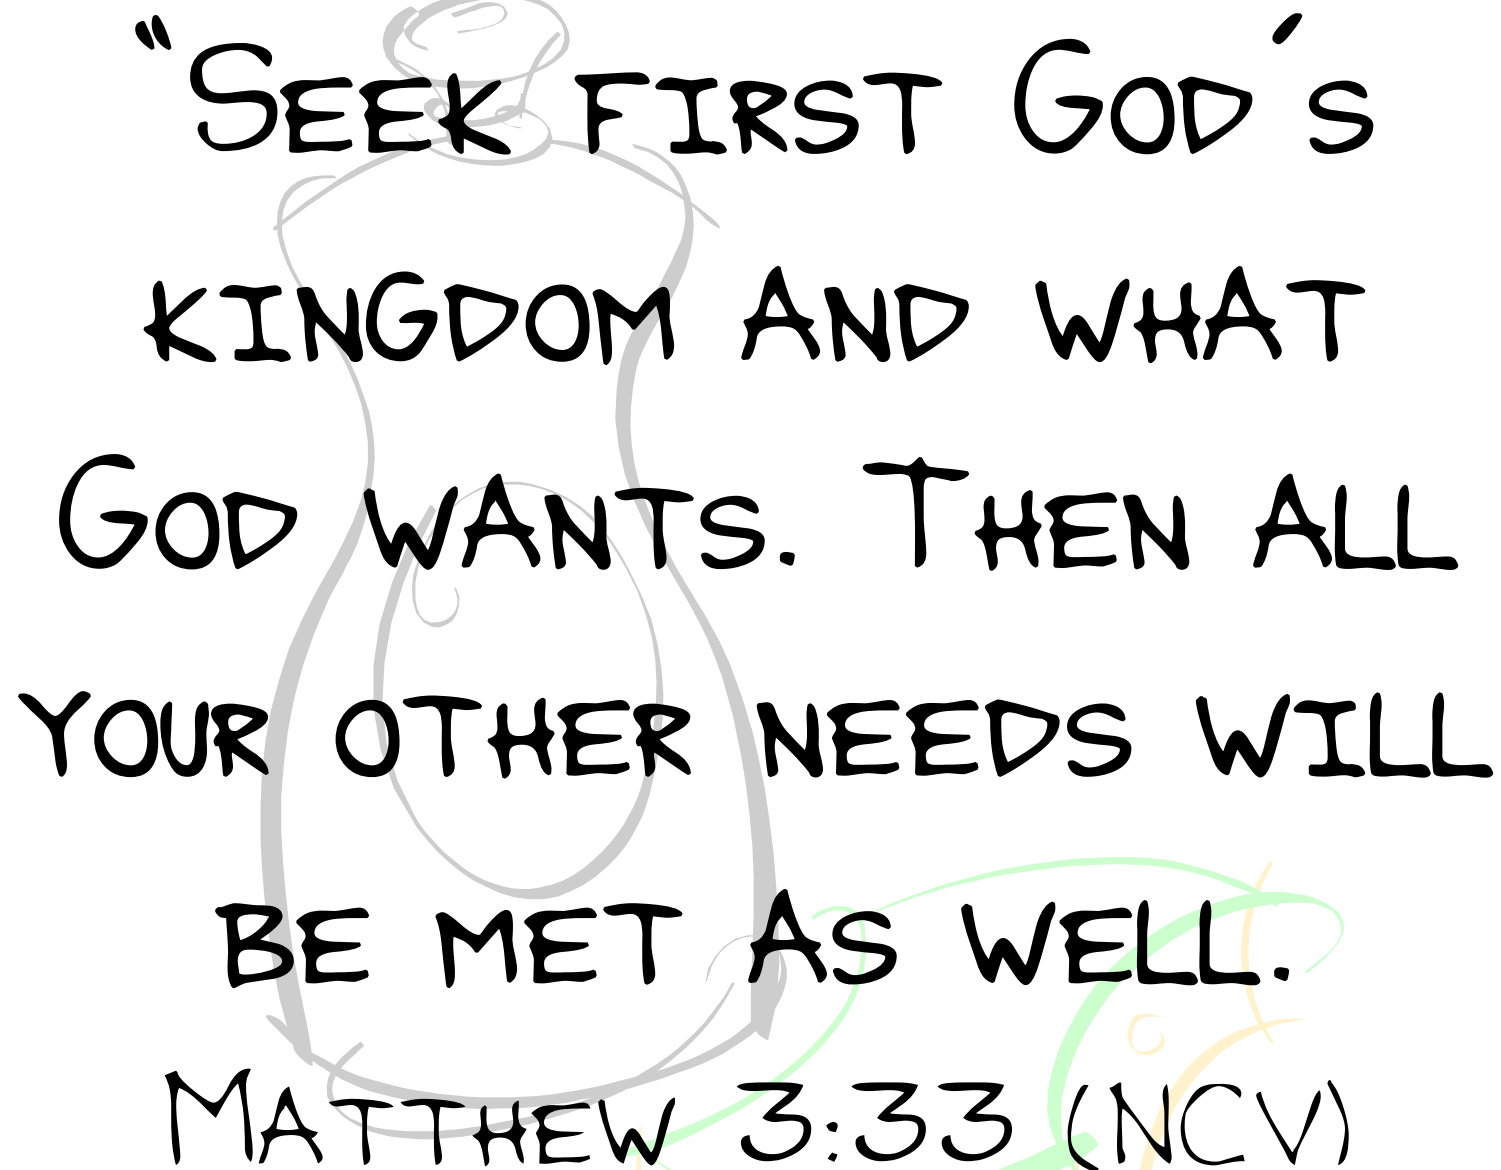 “Seek first God´s
kingdom and what
God wants. Then all
your other needs will
be met as well.
Matthew 3:33 (NCV)